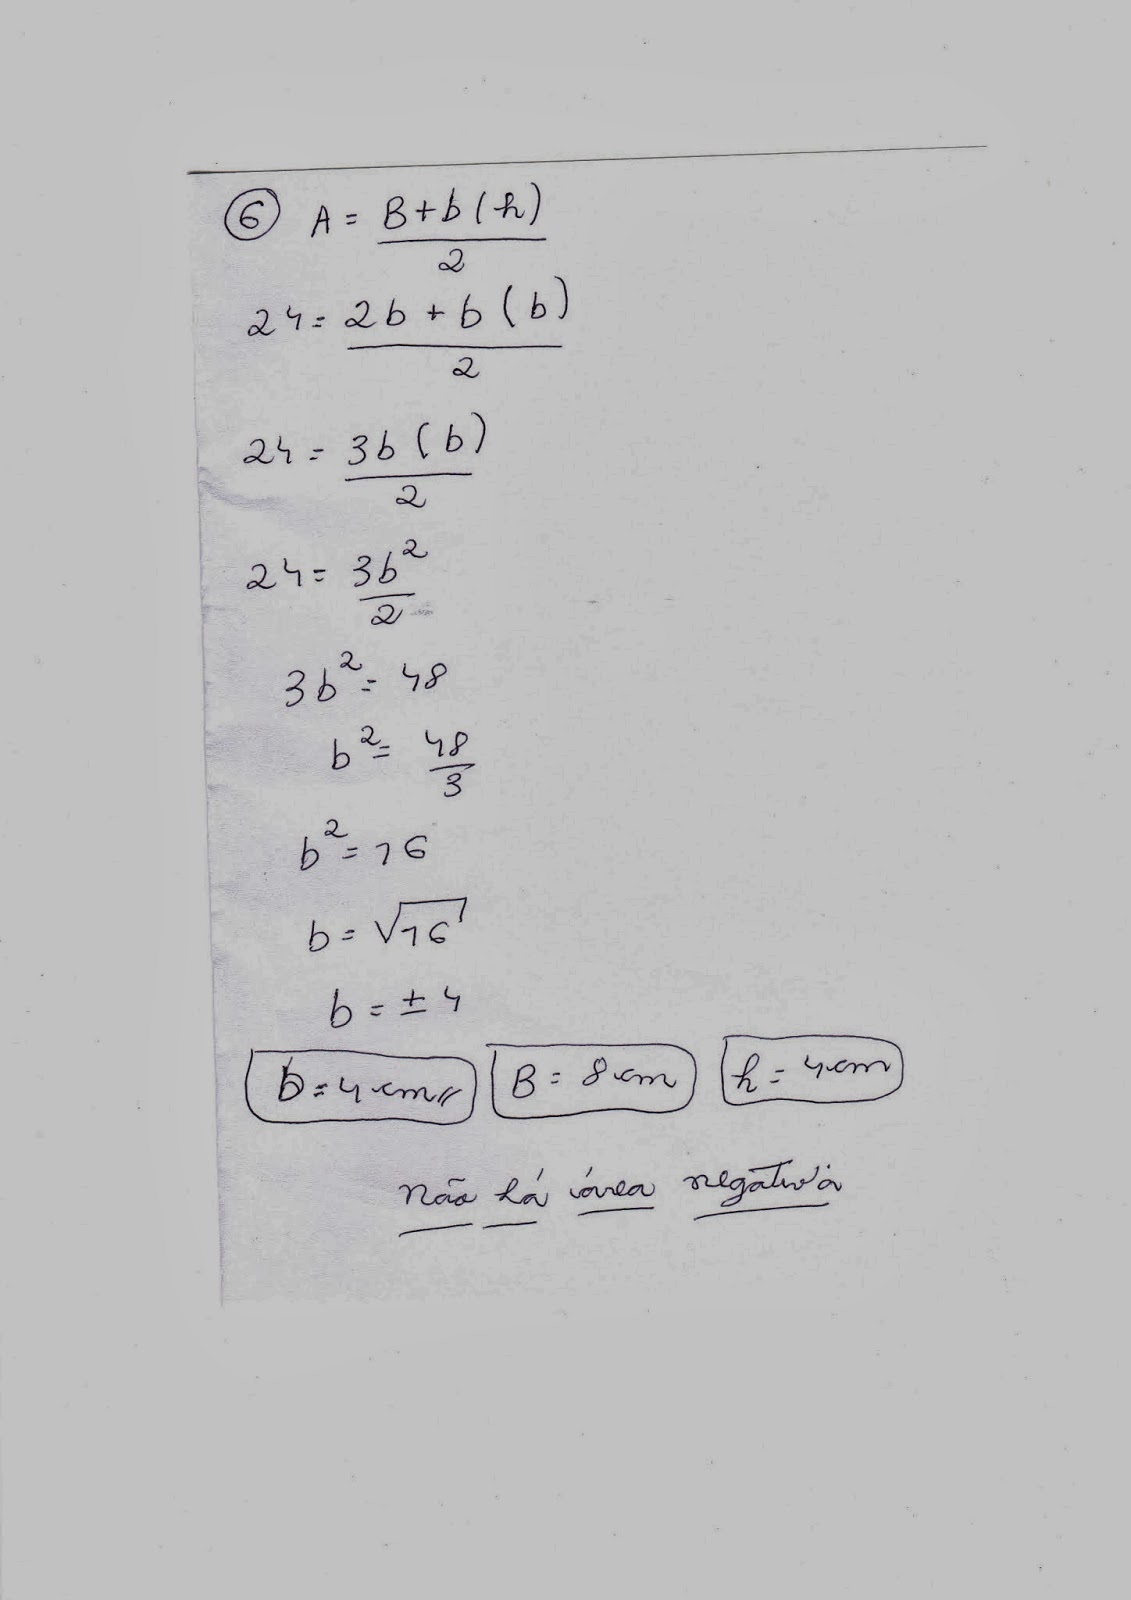 ⑥ A = B+b(h)
2
24 = 2b + b (b)
2
24 = 3b (b)
2
24 = 3b²
2
3b² = 48
b² = 48
3
b² = 16
b = √16
b = ± 4
b = 4 cm// B = 8 cm h = 4 cm
não há área negativa